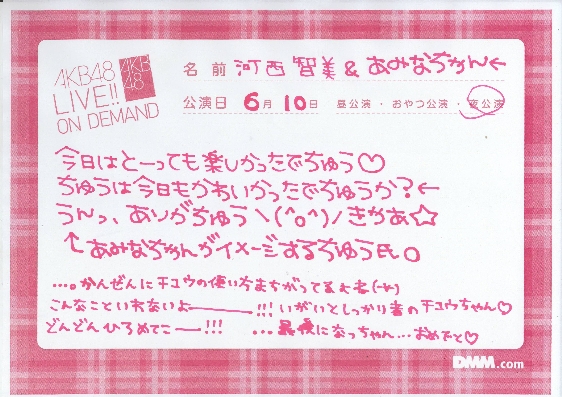 AKB48
LIVE!!
ON DEMAND
AKB
48
名前 河西智美&あみなちゃん←
公演日 6月10日 昼公演・おやつ公演・夜公演
今日はとーっても楽しかったでちゅう♡
ちゅうは今日もかわいかったでちゅうか?←
うんっ、ありがちゅう\(^o^)/きゃあ☆
↑あみなちゃんがイメージするちゅう氏。
...。かんぜんにチュウの使い方まちがってる
こんなこといわないよー!!! いがいとしっかり者のチュウちゃん♡
どんどんひろめてこー!!! ...最後になっちゃん...おめでと♡
DMM.com